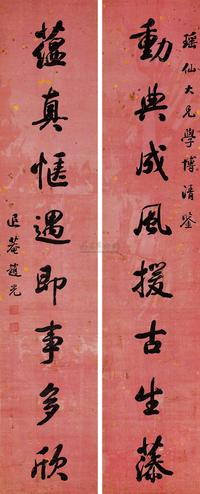 瑶仙大兄學博清鑒
動典成風援古生藻
蕴真愜遇即事多欣
趙光